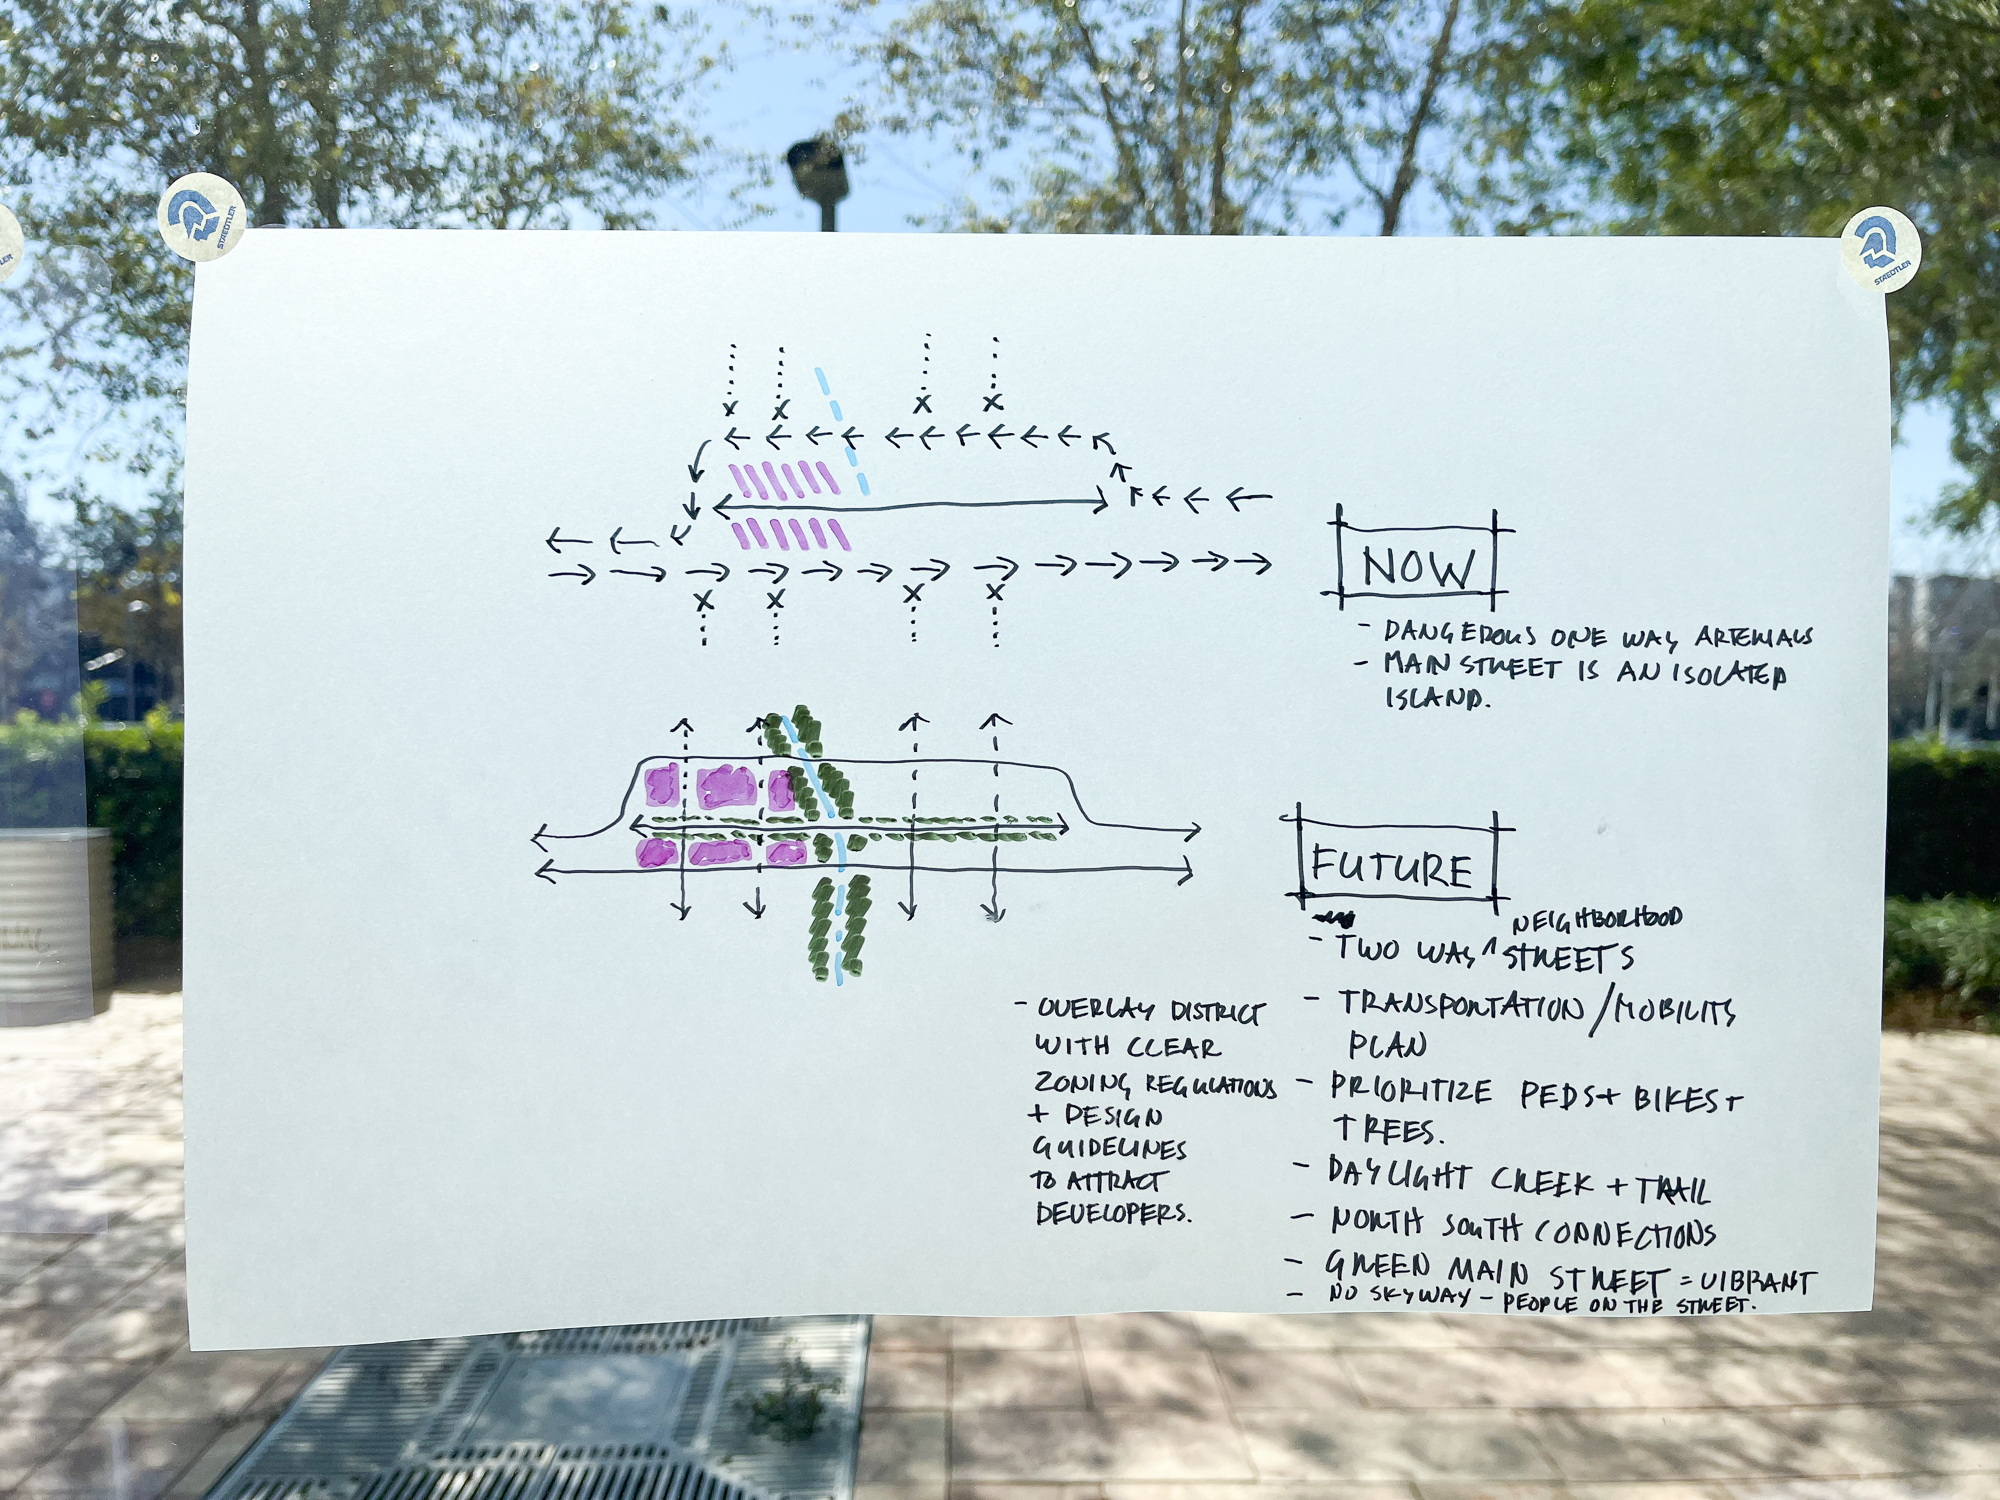 STAEDTLER
STAEDTLER
X X X X
X X X X
NOW
- DANGEROUS ONE WAY ARTERIALS
- MAIN STREET IS AN ISOLATED
ISLAND.
FUTURE
NEIGHBORHOOD
- TWO WAY ^ STREETS
- TRANSPORTATION / MOBILITY
PLAN
- PRIORITIZE PEDS + BIKES +
TREES.
- DAYLIGHT CREEK + TRAIL
- NORTH SOUTH CONNECTIONS
- GREEN MAIN STREET = VIBRANT
- NO SKYWAY - PEOPLE ON THE STREET.
- OVERLAY DISTRICT
WITH CLEAR
ZONING REGULATIONS
+ DESIGN
GUIDELINES
TO ATTRACT
DEVELOPERS.